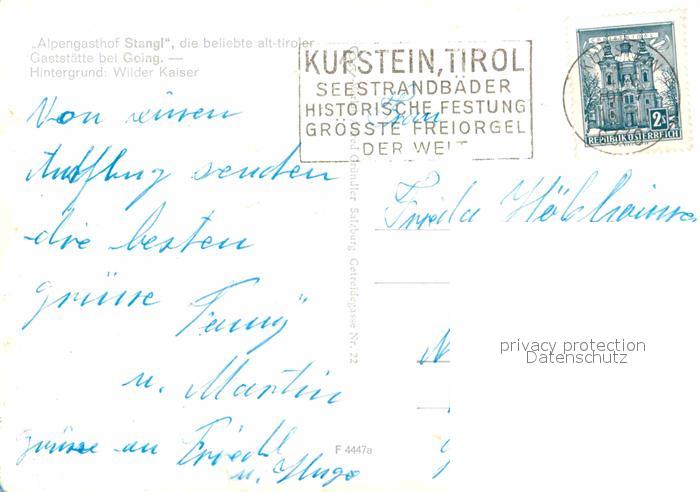 „Alpengasthof Stangl“, die beliebte alt-tiroler
Gaststätte bei Going. —
Hintergrund: Wilder Kaiser
KUFSTEIN, TIROL
SEESTRANDBÄDER
HISTORISCHE FESTUNG
GRÖSSTE FREIORGEL
DER WELT
2S
REPUBLIK ÖSTERREICH
Von einen
Ausflug senden
die besten
grüsse Fanny
u. Martin
grüsse an Friedl
u. Hugo
Frau
Frieda
Gründler Salzburg, Getreidegasse Nr. 22
F 4447a
privacy protection
Datenschutz